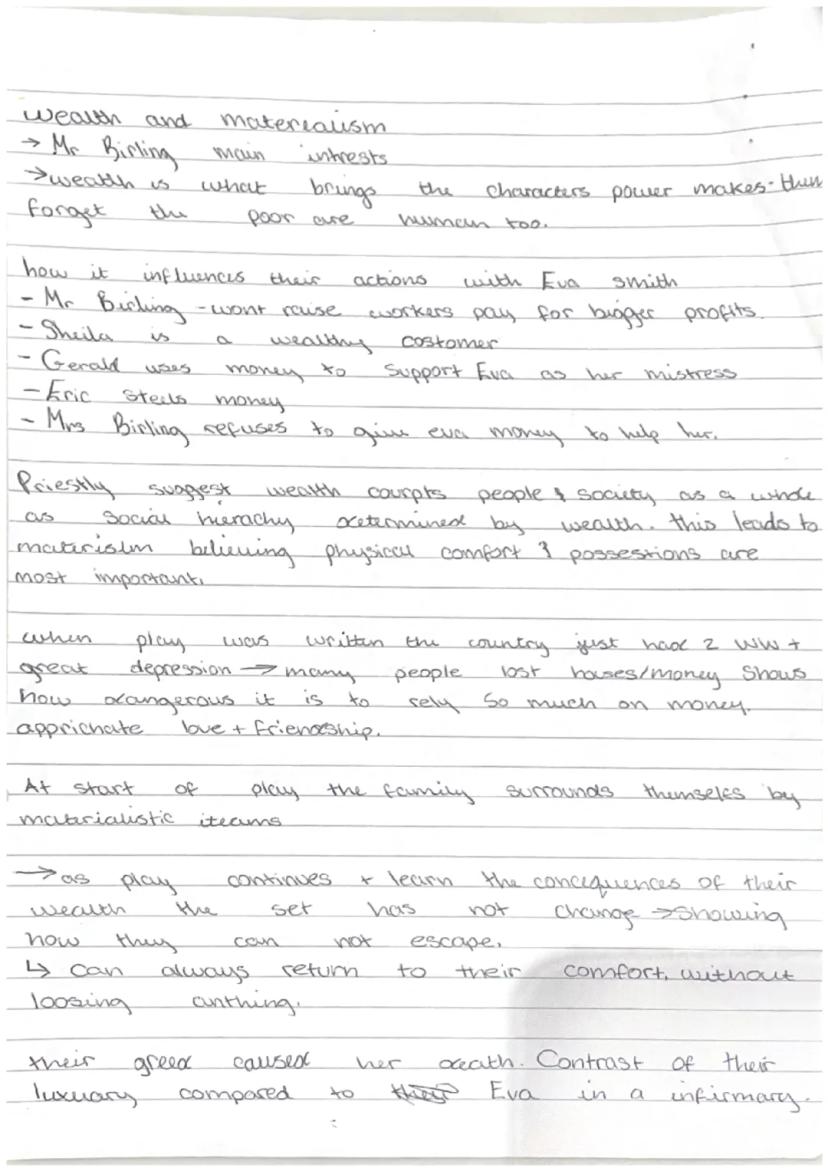 wealth and materealism
→ Mr Birling main intrests
→ wealth is what brings the characters power makes them
forget the poor are human too.
how it influences their actions with Eva smith
- Mr Birling - wont raise workers pay for bigger profits.
- Sheila is a wealthy costomer
- Gerald uses money to support Eva as her mistress
- Eric steels money
- Mrs Birling refuses to give eva money to help her.
Priestly suggest wealth courpts people & society as a whole
as social hierachy determined by wealth. this leads to
materislm believing physical comfort & possestions are
most important.
when play was written the country just had 2 WW +
great depression → many people lost houses/money shows
how dangerous it is to rely so much on money.
apprichate love + friendship.
At start of play the family surrounds themselfs by
materialistic iteams
→ as play continues + learn the concequences of their
wealth the set has not change → showing
how they can not escape.
↳ can always return to their comfort, without
loosing anthing.
their greed caused her death. Contrast of their
luxuary compared to Eva in a infirmary.